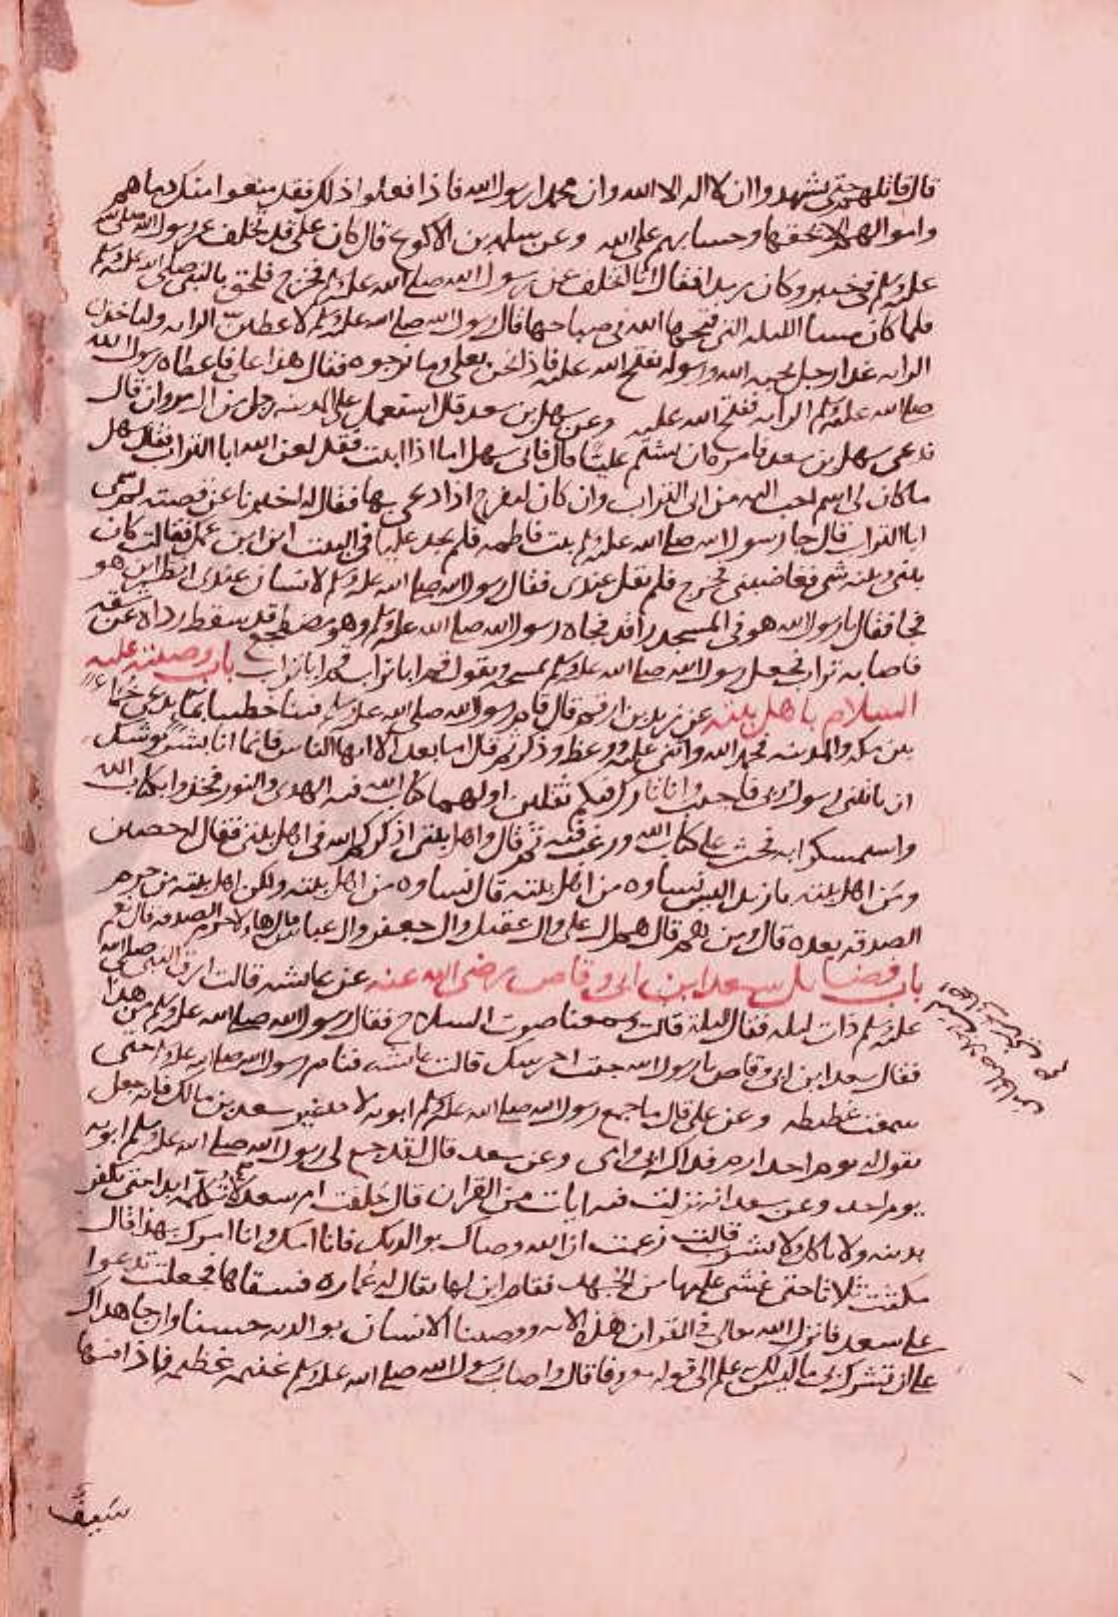 قال قاتلهم حتى يشهدوا ان لا اله الا الله وان محمدا رسول الله فاذا فعلوا ذلك فقد منعوا منك دماهم
واموالهم الا بحقها وحسابهم على الله وعن سلمه بن الاكوع قال كان على قد تخلف عن رسول الله صلى الله
عليه وسلم فى خيبر وكان رمدا فقال انا اتخلف عن رسول الله صلى الله عليه وسلم فخرج فلحق بالنبى صلى الله عليه وسلم
فلما كان مسا الليله التى فتحها الله فى صباحها قال رسول الله صلى الله عليه وسلم لاعطين الرايه وليا خذن
الرايه غدا رجل يحبه الله ورسوله يفتح الله عليه فاذا نحن بعلى وما نرجوه فقال هذا على فاعطاه رسول الله
صلى الله عليه وسلم الرايه ففتح الله عليه وعن سهل بن سعد قال استعمل على المدينه رجل من ال مروان قال
فدعى سهل بن سعد فامره ان يشتم عليًا قال فابى سهل اما اذا ابيت فقل لعن الله ابا التراب فقال سهل
ما كان لى اسم احب اليه من ابى التراب وان كان ليفرح اذا دعى بها فقال له اخبرنا عن قصته لم سمى
ابا التراب قال جا رسول الله صلى الله عليه وسلم بيت فاطمه فلم يجد عليا فى البيت اين ابن عمك فقالت كان
بينى وبينه شى فغاضبنى فخرج فلم يقل عندى فقال رسول الله صلى الله عليه وسلم لانسان عندى انظر اين هو
فجا فقال يا رسول الله هو فى المسجد راقد فجاه رسول الله صلى الله عليه وسلم وهو مضطجع قد سقط رداه عن شقه
فاصابه تراب فجعل رسول الله صلى الله عليه وسلم يمسحه ويقول قم ابا تراب قم ابا تراب باب وصيته عليه
السلام باهل بيته عن زيد بن ارقم قال قام رسول الله صلى الله عليه وسلم فينا خطيبا بما يدعى خُمًا
بين مكه والمدينه فحمد الله واثنى عليه ووعظ وذكر ثم قال اما بعد الا ايها الناس فانما انا بشر يوشك
ان ياتينى رسول ربى فاجيب وانا تارك فيكم ثقلين اولهما كتاب الله فيه الهدى والنور فخذوا بكتاب الله
واستمسكوا به فحث على كتاب الله ورغب فيه ثم قال واهل بيتى اذكركم الله فى اهل بيتى فقال له حصين
ومن اهل بيته يا زيد اليس نساوه من اهل بيته قال نساوه من اهل بيته ولكن اهل بيته من حرم
الصدقه بعده قال ومن هم قال هم ال على وال عقيل وال جعفر وال عباس قال هاولا حرم الصدقه قال نعم
باب فضايل سعد ابن ابى وقاص رضى الله عنه عن عايشه قالت ارق النبى صلى الله
عليه وسلم ذات ليله فقال ليلة قالت وسمعنا صوت السلاح فقال رسول الله صلى الله عليه وسلم من هذا
فقال سعد ابن ابى وقاص يا رسول الله جيت احرسك قالت عايشه فنام رسول الله صلى الله عليه وسلم حتى
سمعت غطيطه وعن على قال ما جمع رسول الله صلى الله عليه وسلم ابويه لاحد غير سعد بن مالك فانه جعل
يقول له يوم احد ارم فداك ابى وامى وعن سعد قال لقد جمع لى رسول الله صلى الله عليه وسلم ابويه
يوم احد وعن سعد انه نزلت فيه ايات من القران قال حلفت ام سعد لا تكلمه ابدا حتى يكفر
بدينه ولا تاكل ولا تشرب قالت زعمت ان الله وصاك بوالديك فانا امك وانا امرك بهذا قال
مكثت ثلاثا حتى غشى عليها من الجهد فقام ابن لها يقال له عُماره فسقاها فجعلت تدعوا
على سعد فانزل الله تعالى فى القران هذه الايه ووصينا الانسان بوالديه حسنا وان جاهداك
على ان تشرك بى ما ليس لك به علم الى قوله معروفا قال واصاب رسول الله صلى الله عليه وسلم غنيمه عظيمه فاذا فيها
سَيفٌ